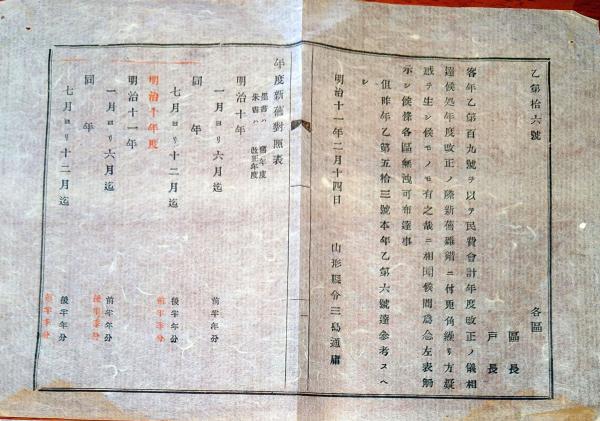 乙第拾六號
各區
區長
戸長
客年乙第百九號ヲ以テ民費會計年度改正ノ儀相
達候処年度改正ノ際新舊雜錯ニ付兎角纏リ方疑
惑ヲ生シ候モノモ有之哉ニ相聞候間為念左表觸
示シ候條各區無洩可布達事
但昨年乙第五拾三號本年乙第六號達參考スヘ
シ
明治十一年二月十四日
山形縣令三島通庸
年度新舊對照表
墨書ハ 舊年度
朱書ハ 改正年度
明治十年
一月ヨリ六月迄
前半年分
同年
七月ヨリ十二月迄
後半年分
前半季分
明治十年度
明治十一年
一月ヨリ六月迄
前半年分
後半季分
同年
七月ヨリ十二月迄
後半年分
前半季分